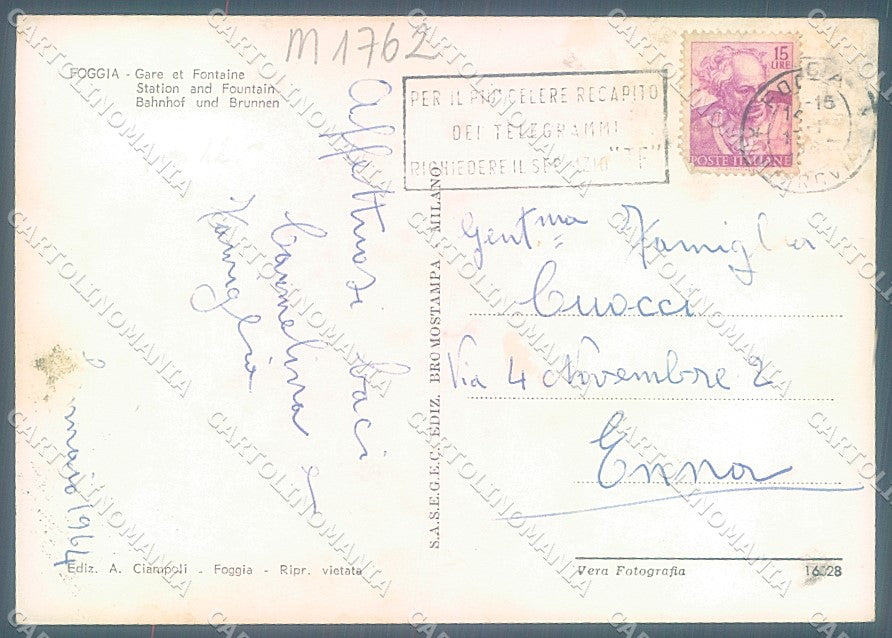 M1762
FOGGIA - Gare et Fontaine
Station and Fountain
Bahnhof und Brunnen
PER IL PIÙ CELERE RECAPITO
DEI TELEGRAMMI
RICHIEDERE IL SERVIZIO "TF"
15
LIRE
POSTE ITALIANE
FOGGIA
FERROVIA
Affettuosi baci
Carmelina e
Famiglia
maggio 1964
S.A.S.E.G.E.C. EDIZ. BROMOSTAMPA, MILANO
Gent.ma Famiglia
Cuocci
Via 4 Novembre 2
Enna
Ediz. A. Ciampoli - Foggia - Ripr. vietata
Vera Fotografia
CARTOLINOMANIA